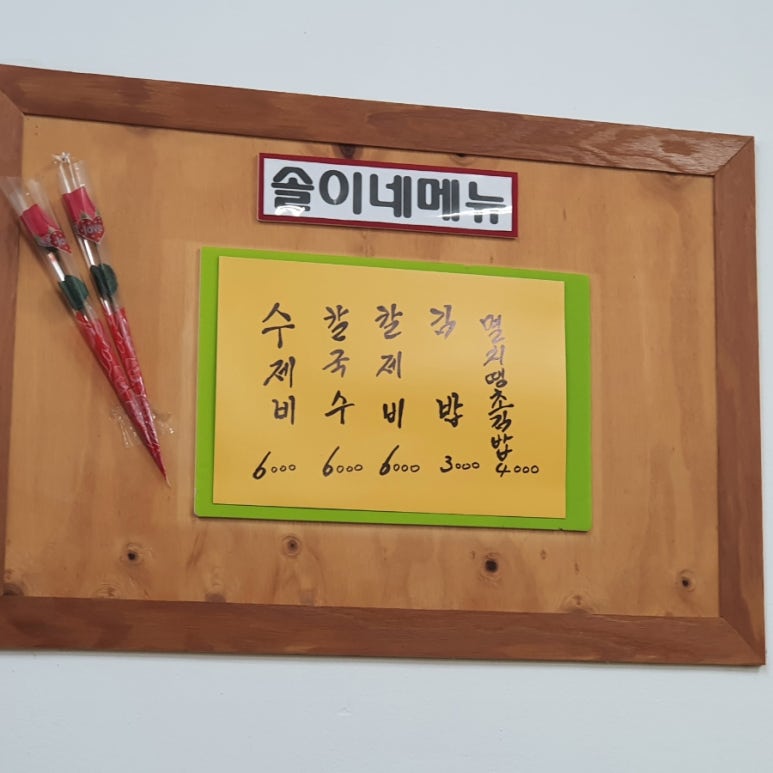 솔이네메뉴
수제비 6000
칼국수 6000
칼제비 6000
김밥 3000
멸치땡초김밥 4000